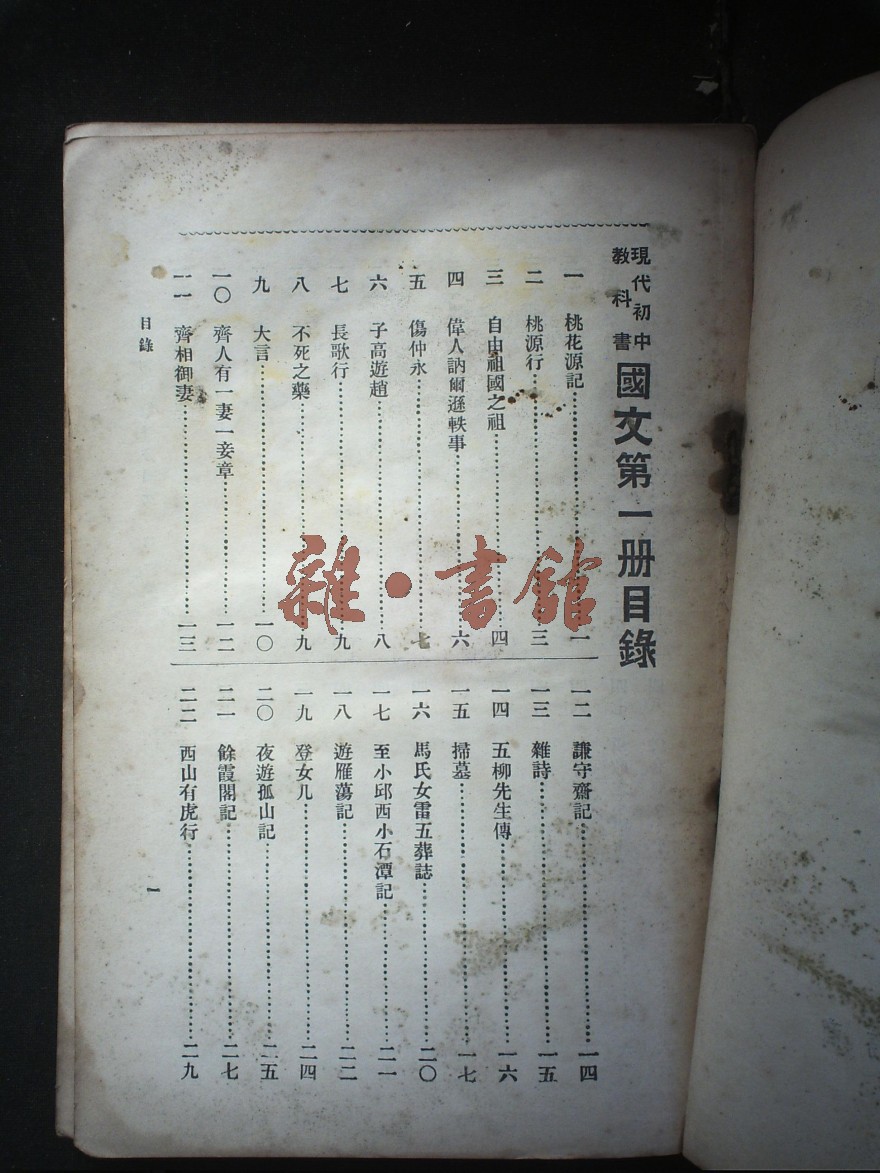 現代初中
教科書
國文第一册目錄
一 桃花源記……一
二 桃源行……三
三 自由祖國之祖……四
四 偉人訥爾遜軼事……六
五 傷仲永……七
六 子高遊趙……八
七 長歌行……九
八 不死之藥……九
九 大言……一〇
一〇 齊人有一妻一妾章……一二
一一 齊相御妻……一三
一二 謙守齋記……一四
一三 雜詩……一五
一四 五柳先生傳……一六
一五 掃墓……一七
一六 馬氏女雷五葬誌……二〇
一七 至小邱西小石潭記……二一
一八 遊雁蕩記……二二
一九 登女几……二四
二〇 夜遊孤山記……二五
二一 餘霞閣記……二七
二二 西山有虎行……二九
目錄
一
雜·書館